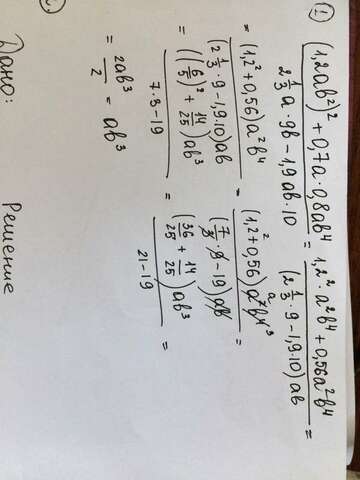 ① (1,2ab²)² + 0,7a·0,8ab⁴ / 2 1/3 a·9b − 1,9ab·10 = 1,2²·a²b⁴ + 0,56a²b⁴ / (2 1/3 · 9 − 1,9·10)ab =
= (1,2² + 0,56)a²b⁴ / (2 1/3 · 9 − 1,9·10)ab = (1,2² + 0,56)a²b⁴ a b³ / (7/3 · 9 − 19)ab =
= ((6/5)² + 14/25)ab³ / 7·3 − 19 = (36/25 + 14/25)ab³ / 21 − 19 =
= 2ab³ / 2 = ab³
Дано: Решение